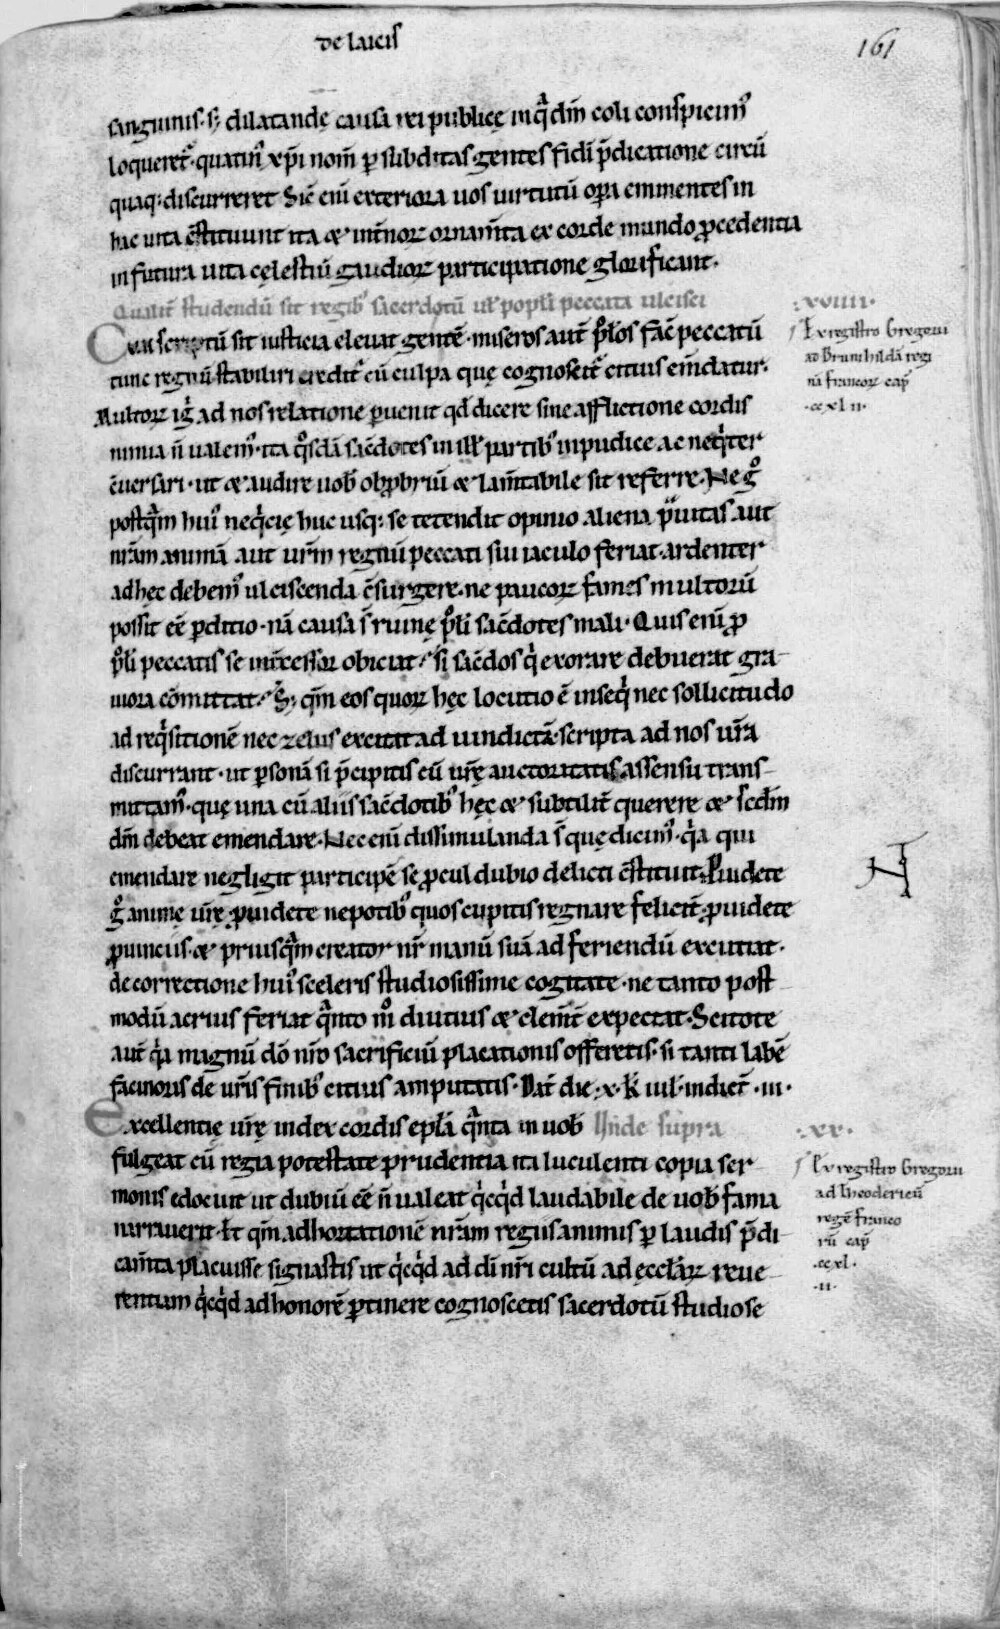 De laicis
161
sanguinis· s; dilatandę causa rei publicę in q̃ dm̄ coli conspicim᷒
loqueret᷑· quatin᷒ xp̄i nom̄ p̱ subditas gentes fidī p̄dicatione circū
quaq; discurreret Sic̄ enī exteriora uos uirtutū op̱a eminentes in
hac uita c̄stituunt ita & int̄noꝝ ornam̄ta ex corde mundo ꝓcedentia
in futura uita cęlestiū gaudioꝝ participatione glorificant·
Qualit̄ studendū sit regib᷒ sacerdotū ul̄ popl̄i peccata ulcisci
·xviiii·
Cum scriptū sit iusticia eleuat gentē· miseros aut̄ pp̄l̄os fac̄ peccatū
Ex registro Gregorii
tunc regnū stabiliri credit᷑ cū culpa quę cognoscit᷑ citius em̄datur·
ad Brunihildā regi
nā francoꝝ cap̄
Multoꝝ ig̊ ad nos relatione p̱uenit qd̄ dicere sine afflictione cordis
·ccxlii·
nimia n̄ ualem᷒· ita q̊sdā sac̄dotes in ill̄ partib᷒ inpudice ac neq̊ter
c̄uersari· ut & audire uob̄ obꝓbriū & lam̄tabile sit referre· Ne g̊
postq̄m hui᷒ neq̊cię huc usq; se tetendit opinio aliena p̄uitas aut
nr̄am animā aut ur̄m regnū peccati sui iaculo feriat· ardenter
ad hęc debem᷒ ulciscenda c̄surgere· ne paucoꝝ facinus multorū
possit eē p̱ditio· nā causa s̄ ruinę pp̄l̄i sac̄dotes mali· Quis enī ꝓ
pp̄l̄i peccatis se int̄cessor obiciat· si sac̄dos q̊ exorare debuerat gra-
uiora cōmittat· S; qm̄ eos quoꝝ hęc locutio ē inseq̊ nec sollicitudo
ad req̊sitionē nec zelus excitat ad uindictā· scripta ad nos ur̄a
discurrant· ut p̱sonā si p̄cipitis cū ur̄ę auctoritatis assensu trans-
mittam᷒· quę una cū aliis sac̄dotib᷒ hęc & subtilit̄ querere & scd̄m
dm̄ debeat emendare· Nec enī dissimulanda s̄ quę dicim᷒· q̄a qui
emendare negligit participē se ꝓculdubio delicti c̄stituit· Ꝓuidete
g̊ animę ur̄ę ꝓuidete nepotib᷒ quos cupitis regnare felicit̄· ꝓuidete
ꝓuinciis· & priusq̄m creator nr̄ manū suā ad feriendū excutiat·
de correctione hui᷒ sceleris studiosissime cogitate· ne tanto post-
modū acrius feriat q̄nto m̊ diutius & clem̄t᷑ expectat· Scitote
aut̄ q̄a magnū dō nr̄o sacrificiū placationis offeretis· si tanti labē
facinoris de ur̄is finib᷒ citius amputatis· Dat̄ die· x· kl̄ iul̄· indict̄· iii·
Excellentię ur̄ę index cordis epl̄a q̄nta in uob̄ Unde supra
·xx·
fulgeat cū regia potestate prudentia ita luculenti copia ser-
Ex registro Gregorii
monis edocuit ut dubiū eē n̄ ualeat q̊cq̊d laudabile de uob̄ fama
ad theodericū
narrauerit· Et qm̄ adhortationē nr̄am regiis animis p̱ laudis p̄di-
regē franco
rū cap̄
cam̄ta placuisse signastis ut q̊cq̊d ad dī nr̄i cultū ad ęccl̄iaꝝ reue-
·ccxl·
·ii·
rentiam q̊cq̊d ad honorē p̱tinere cognoscetis sacerdotū studiose